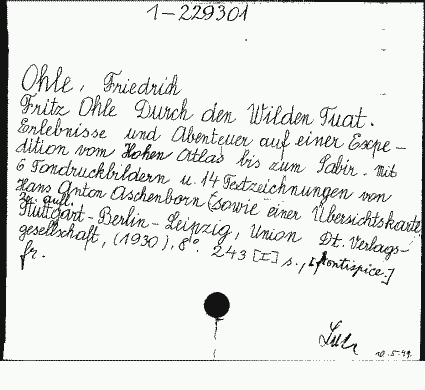 1-229301
Ohle, Friedrich
Fritz Ohle Durch den Wilden Tuat.
Erlebnisse und Abenteuer auf einer Expe-
dition vom Hohen Atlas bis zum Sabir. Mit
6 Tondruckbildern u. 14 Textzeichnungen von
Hans Anton Aschenborn (sowie einer Übersichtskarte
Stuttgart-Berlin-Leipzig, Union Dt. Verlags-
gesellschaft, (1930). 8°. 243 [I] s., [frontispice.]
fr.
10.5.49.